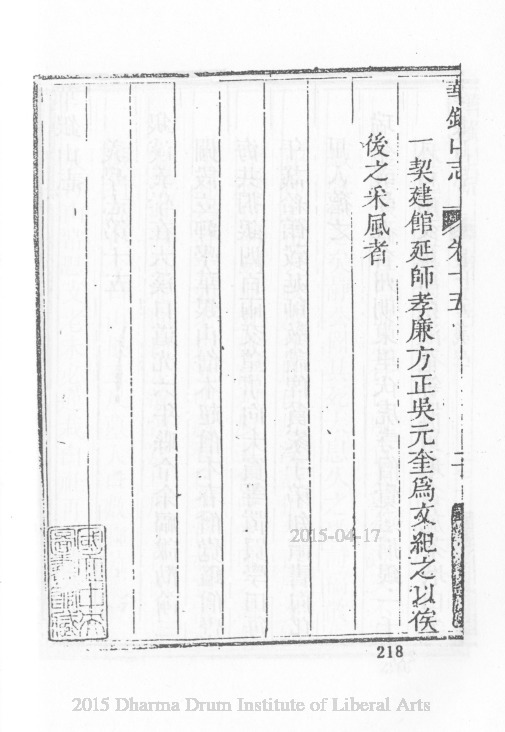 華銀山志 卷十五 二十
一契建館延師孝廉方正吳元奎爲文紀之以俟
後之采風者
2015-04-17
218
2015 Dharma Drum Institute of Liberal Arts